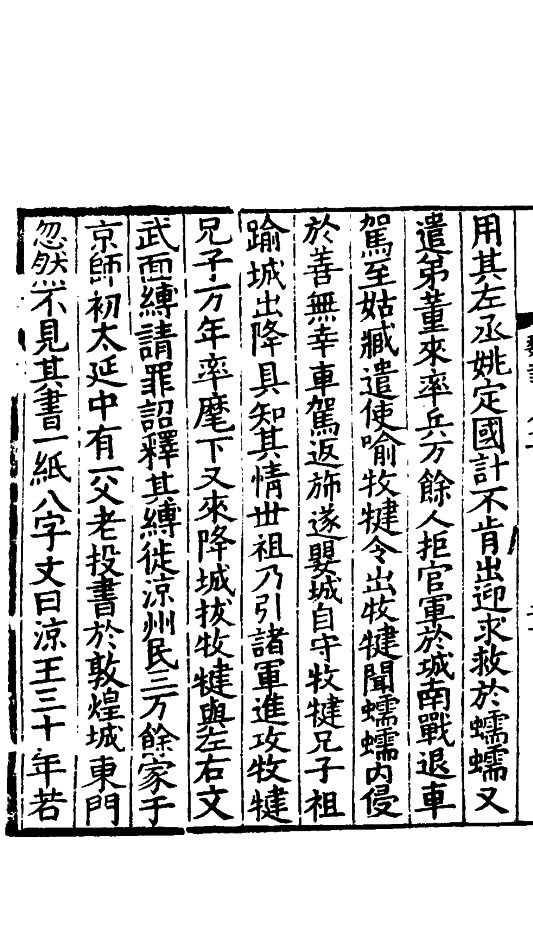 用其左丞姚定國計不肯出迎求救於蠕蠕又
遣弟董來率兵万餘人拒官軍於城南戰退車
駕至姑臧遣使喻牧犍令出牧犍聞蠕蠕內侵
於善無幸車駕返斾遂嬰城自守牧犍兄子祖
踰城出降具知其情世祖乃引諸軍進攻牧犍
兄子万年率麾下又來降城拔牧犍與左右文
武面縛請罪詔釋其縛徙涼州民三万餘家于
京師初太延中有一父老投書於敦煌城東門
忽然不見其書一紙八字文曰涼王三十年若